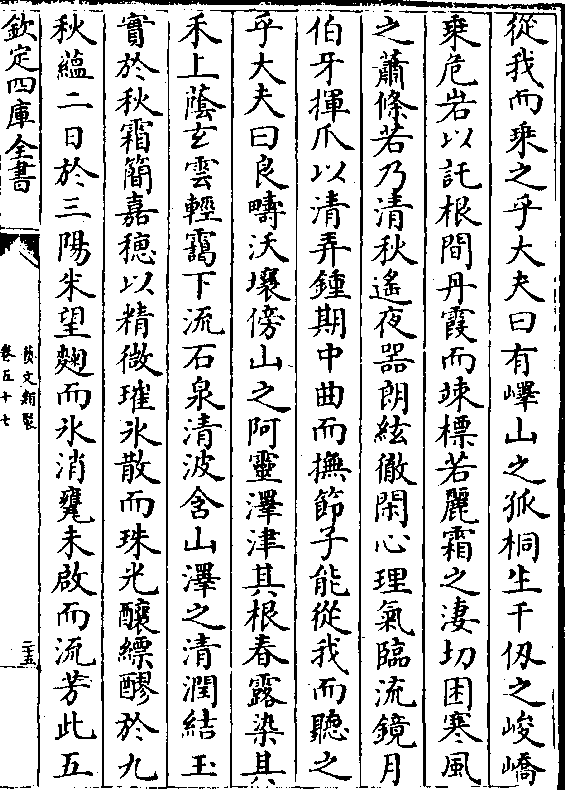 從我而乗之乎大夫曰有嶧山之孤桐生千仭之峻嶠
乗危岩以託根間丹霞而竦標若麗霜之淒切困寒風
之蕭條若乃清秋遙夜器朗絃徹閑心理氣臨流鏡月
伯牙揮爪以清弄鍾期中曲而撫節子能從我而聽之
乎大夫曰良疇沃壤傍山之阿靈澤津其根春露染其
禾上蔭玄雲輕靄下流石泉清波含山澤之清潤結玉
實於秋霜簡嘉穂以精微璀氷散而珠光釀縹醪於九
秋蘊二日於三陽米望麴而氷消甕未啟而流芳此五
欽定四庫全書
藝文類聚
卷五十七
二十五